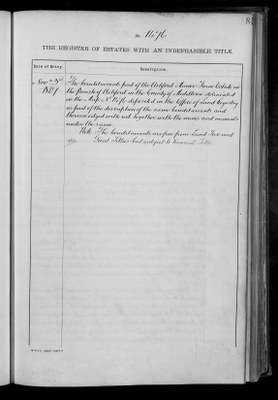 No. 1476
THE REGISTER OF ESTATES WITH AN INDEFEASIBLE TITLE.
Date of Entry.
Description.
Novr
The hereditaments part of the Ashford Manor Farm Estate in
the parish of Ashford in the County of Middlesex delineated
on the Map No 1476 deposited in the Office of Land Registry
as part of the description of the same hereditaments and
thereon edged with red together with the mines and minerals
under the same.
Note The hereditaments are free from Land Tax and
Great Tithes but subject to Tithes